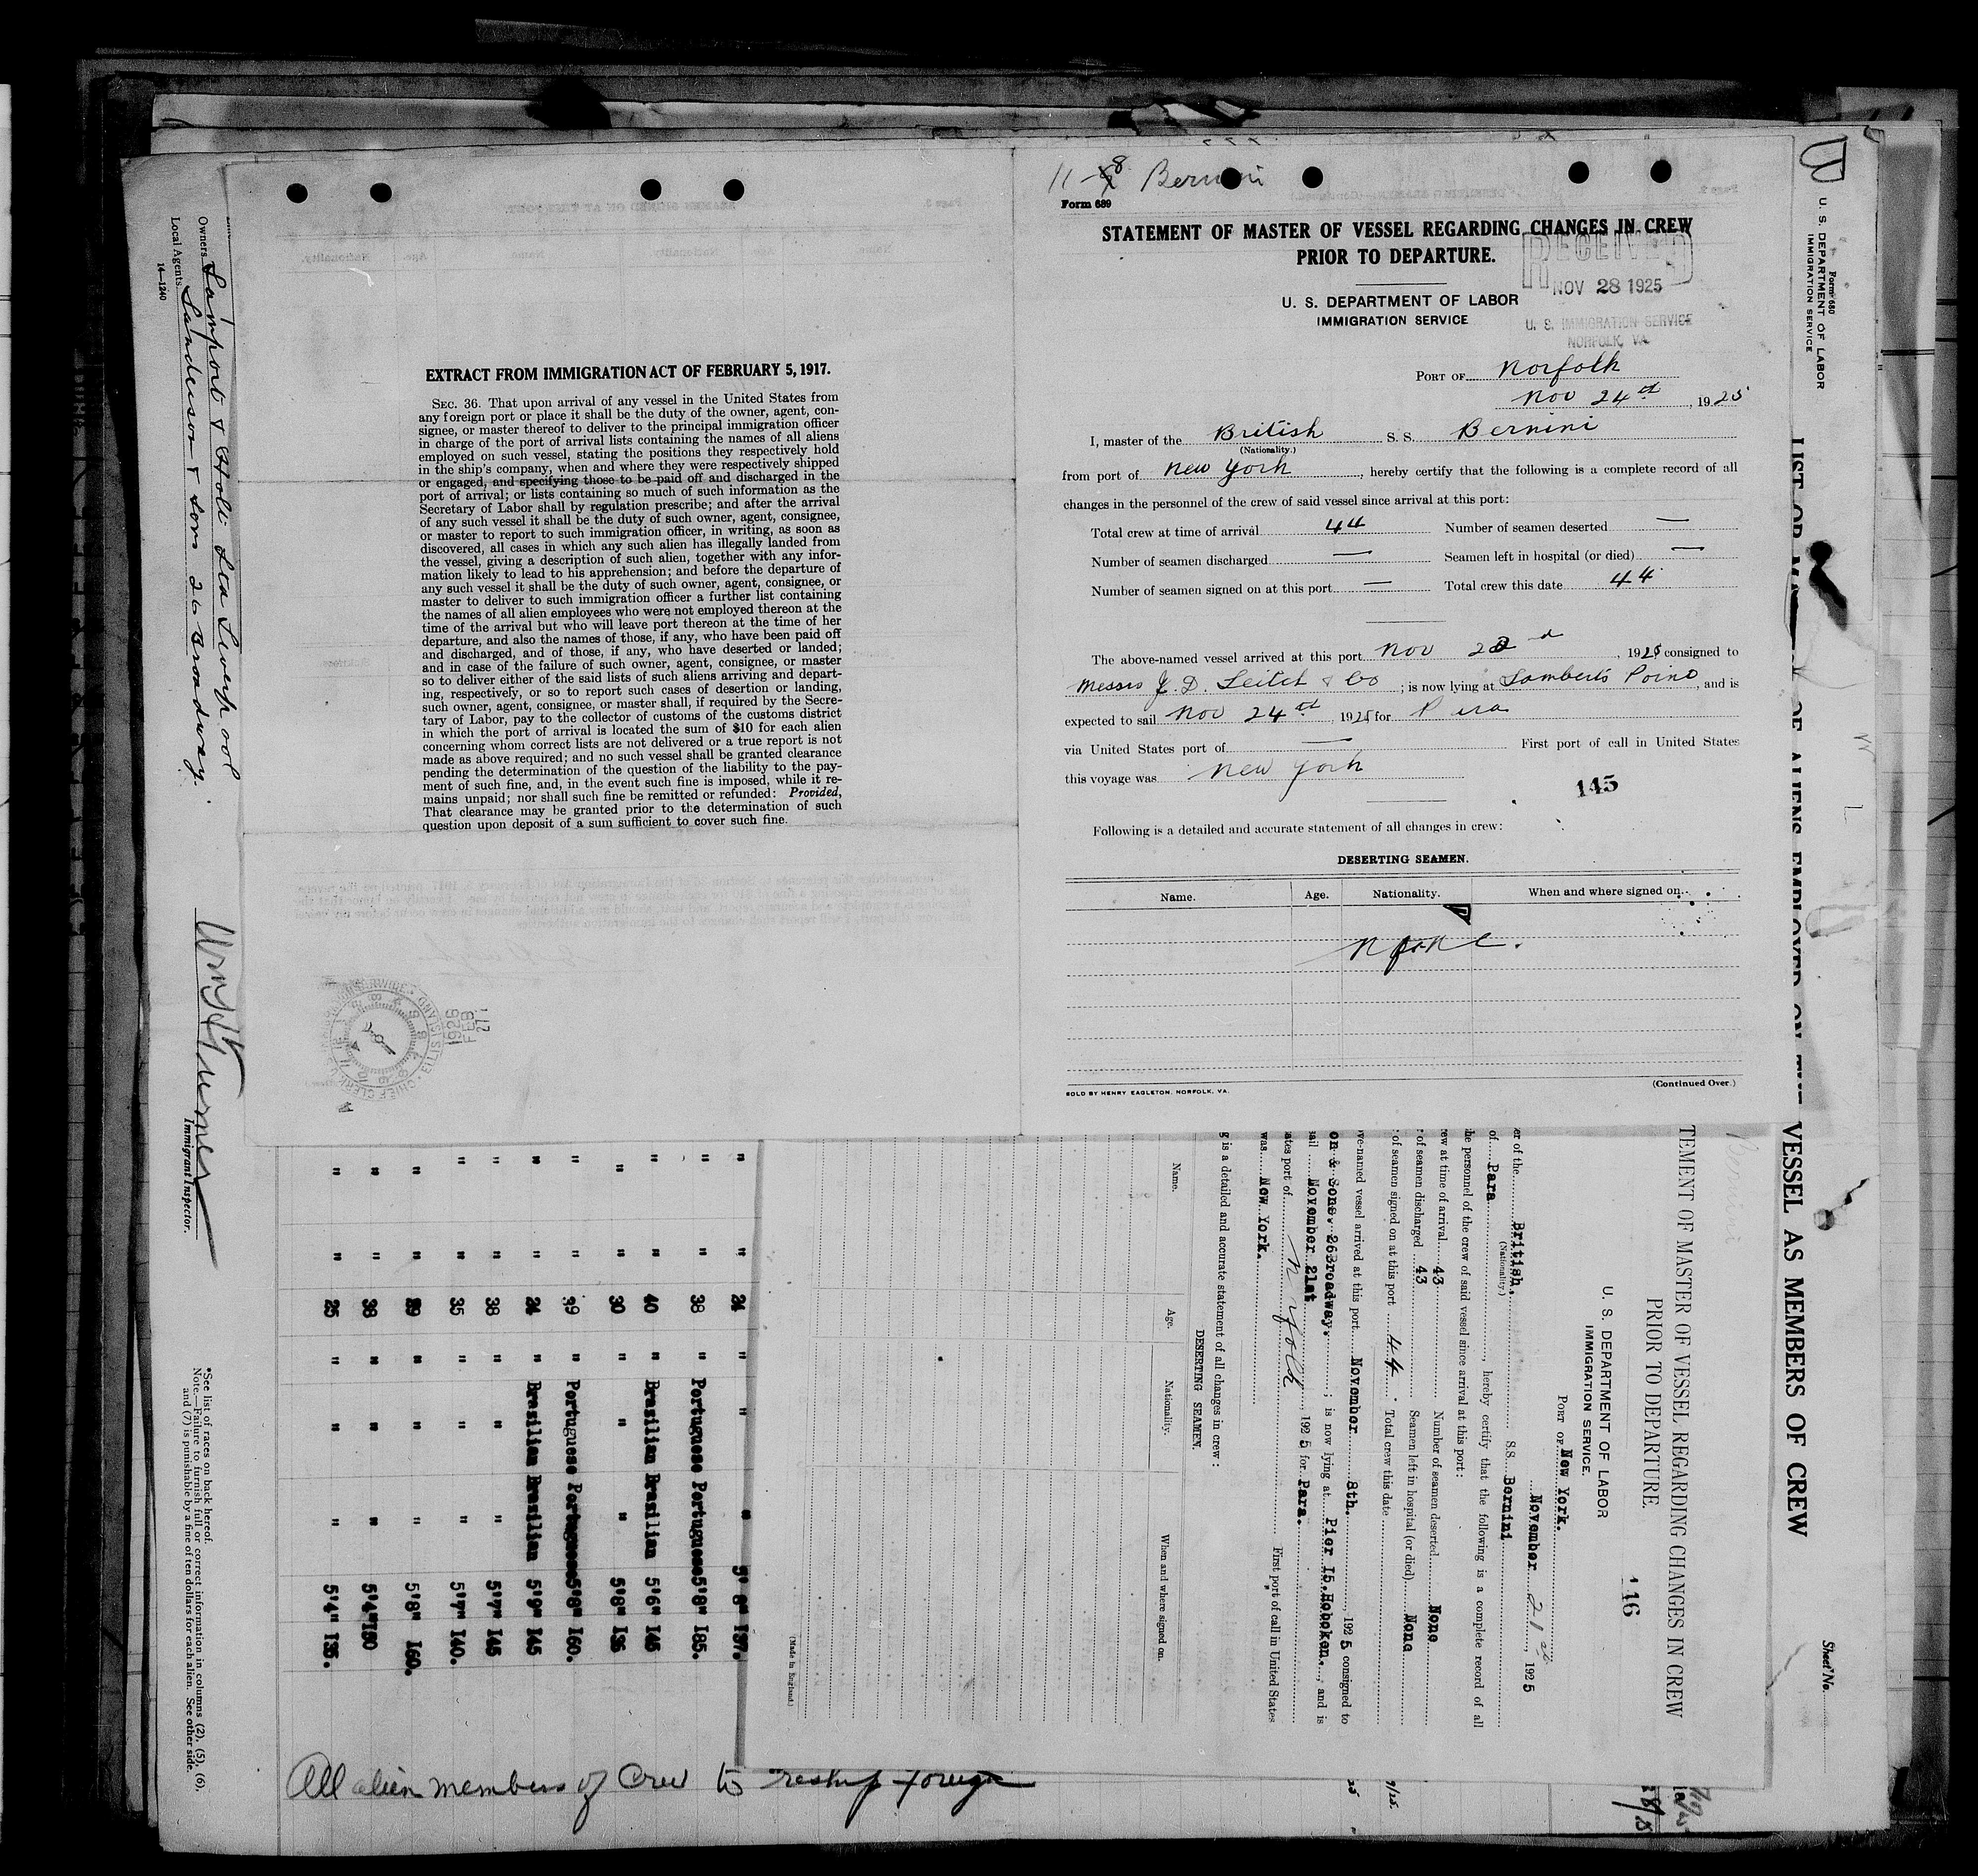 11-8 Bernini
Form 689
STATEMENT OF MASTER OF VESSEL REGARDING CHANGES IN CREW
PRIOR TO DEPARTURE.
U. S. DEPARTMENT OF LABOR
IMMIGRATION SERVICE
RECEIVED
NOV 28 1925
U. S. IMMIGRATION SERVICE
NORFOLK, VA.
PORT OF Norfolk
Nov 24th, 1925
I, master of the British S. S. Bernini
(Nationality.)
from port of New York, hereby certify that the following is a complete record of all
changes in the personnel of the crew of said vessel since arrival at this port:
Total crew at time of arrival 44 Number of seamen deserted —
Number of seamen discharged — Seamen left in hospital (or died) —
Number of seamen signed on at this port — Total crew this date 44
The above-named vessel arrived at this port Nov 22d, 1925 consigned to
Messrs J. D. Leitch & Co; is now lying at Lamberts Point, and is
expected to sail Nov 24th, 1925 for Para
via United States port of — First port of call in United States
this voyage was New York
145
Following is a detailed and accurate statement of all changes in crew:
DESERTING SEAMEN.
Name. Age. Nationality. When and where signed on.
None.
SOLD BY HENRY EAGLETON, NORFOLK, VA.
(Continued Over.)
EXTRACT FROM IMMIGRATION ACT OF FEBRUARY 5, 1917.
SEC. 36. That upon arrival of any vessel in the United States from
any foreign port or place it shall be the duty of the owner, agent, con-
signee, or master thereof to deliver to the principal immigration officer
in charge of the port of arrival lists containing the names of all aliens
employed on such vessel, stating the positions they respectively hold
in the ship's company, when and where they were respectively shipped
or engaged, and specifying those to be paid off and discharged in the
port of arrival; or lists containing so much of such information as the
Secretary of Labor shall by regulation prescribe; and after the arrival
of any such vessel it shall be the duty of such owner, agent, consignee,
or master to report to such immigration officer, in writing, as soon as
discovered, all cases in which any such alien has illegally landed from
the vessel, giving a description of such alien, together with any infor-
mation likely to lead to his apprehension; and before the departure of
any such vessel it shall be the duty of such owner, agent, consignee, or
master to deliver to such immigration officer a further list containing
the names of all alien employees who were not employed thereon at the
time of the arrival but who will leave port thereon at the time of her
departure, and also the names of those, if any, who have been paid off
and discharged, and of those, if any, who have deserted or landed;
and in case of the failure of such owner, agent, consignee, or master
so to deliver either of the said lists of such aliens arriving and depart-
ing, respectively, or so to report such cases of desertion or landing,
such owner, agent, consignee, or master shall, if required by the Secre-
tary of Labor, pay to the collector of customs of the customs district
in which the port of arrival is located the sum of $10 for each alien
concerning whom correct lists are not delivered or a true report is not
made as above required; and no such vessel shall be granted clearance
pending the determination of the question of the liability to the pay-
ment of such fine, and, in the event such fine is imposed, while it re-
mains unpaid; nor shall such fine be remitted or refunded: Provided,
That clearance may be granted prior to the determination of such
question upon deposit of a sum sufficient to cover such fine.
1926
FEB
27
Form 680
U. S. DEPARTMENT OF LABOR
IMMIGRATION SERVICE
VESSEL AS MEMBERS OF CREW
Sheet No.
TEMENT OF MASTER OF VESSEL REGARDING CHANGES IN CREW
PRIOR TO DEPARTURE.
146
U. S. DEPARTMENT OF LABOR
IMMIGRATION SERVICE.
PORT OF New York.
November 21st, 1925
er of the British. S.S. Bernini
(Nationality.)
of Para, hereby certify that the following is a complete record of all
he personnel of the crew of said vessel since arrival at this port:
rew at time of arrival 43 Number of seamen deserted None
of seamen discharged 43 Seamen left in hospital (or died) None
of seamen signed on at this port 44. Total crew this date
ve-named vessel arrived at this port November 8th. 1925 consigned to
on & Sons. 26 Broadway.; is now lying at Pier 15. Hoboken., and is
ail November 21st 1925 for Para.
ates port of Norfolk First port of call in United States
was New York.
g is a detailed and accurate statement of all changes in crew:
DESERTING SEAMEN.
Name. Age. Nationality. When and where signed on.
(Made in England.)
" " 24 " " " 5'8" 137.
" " 38 " Portuguese Portuguese 5'8" 185.
" " 40 " Brasilian Brasilian 5'6" 145
" " 30 " " " 5'8" 135
" " 39 " Portuguese Portuguese 5'8" 160.
" " 24 " Brasilian Brasilian 5'9" 145
" " 38 " " " 5'7" 145
" " 35 " " " 5'7" 140.
" " 29 " " " 5'8" 160.
" " 38 " " " 5'4" 130
" " 25 " " " 5'4" 135.
All alien members of Crew to reship foreign
Owners Lamport & Holt Ltd Liverpool
Local Agents Sanderson & Sons 26 Broadway.
14-1240
Immigrant Inspector.
*See list of races on back hereof.
Note.—Failure to furnish full or correct information in columns (2), (5), (6),
and (7) is punishable by a fine of ten dollars for each alien. See other side.